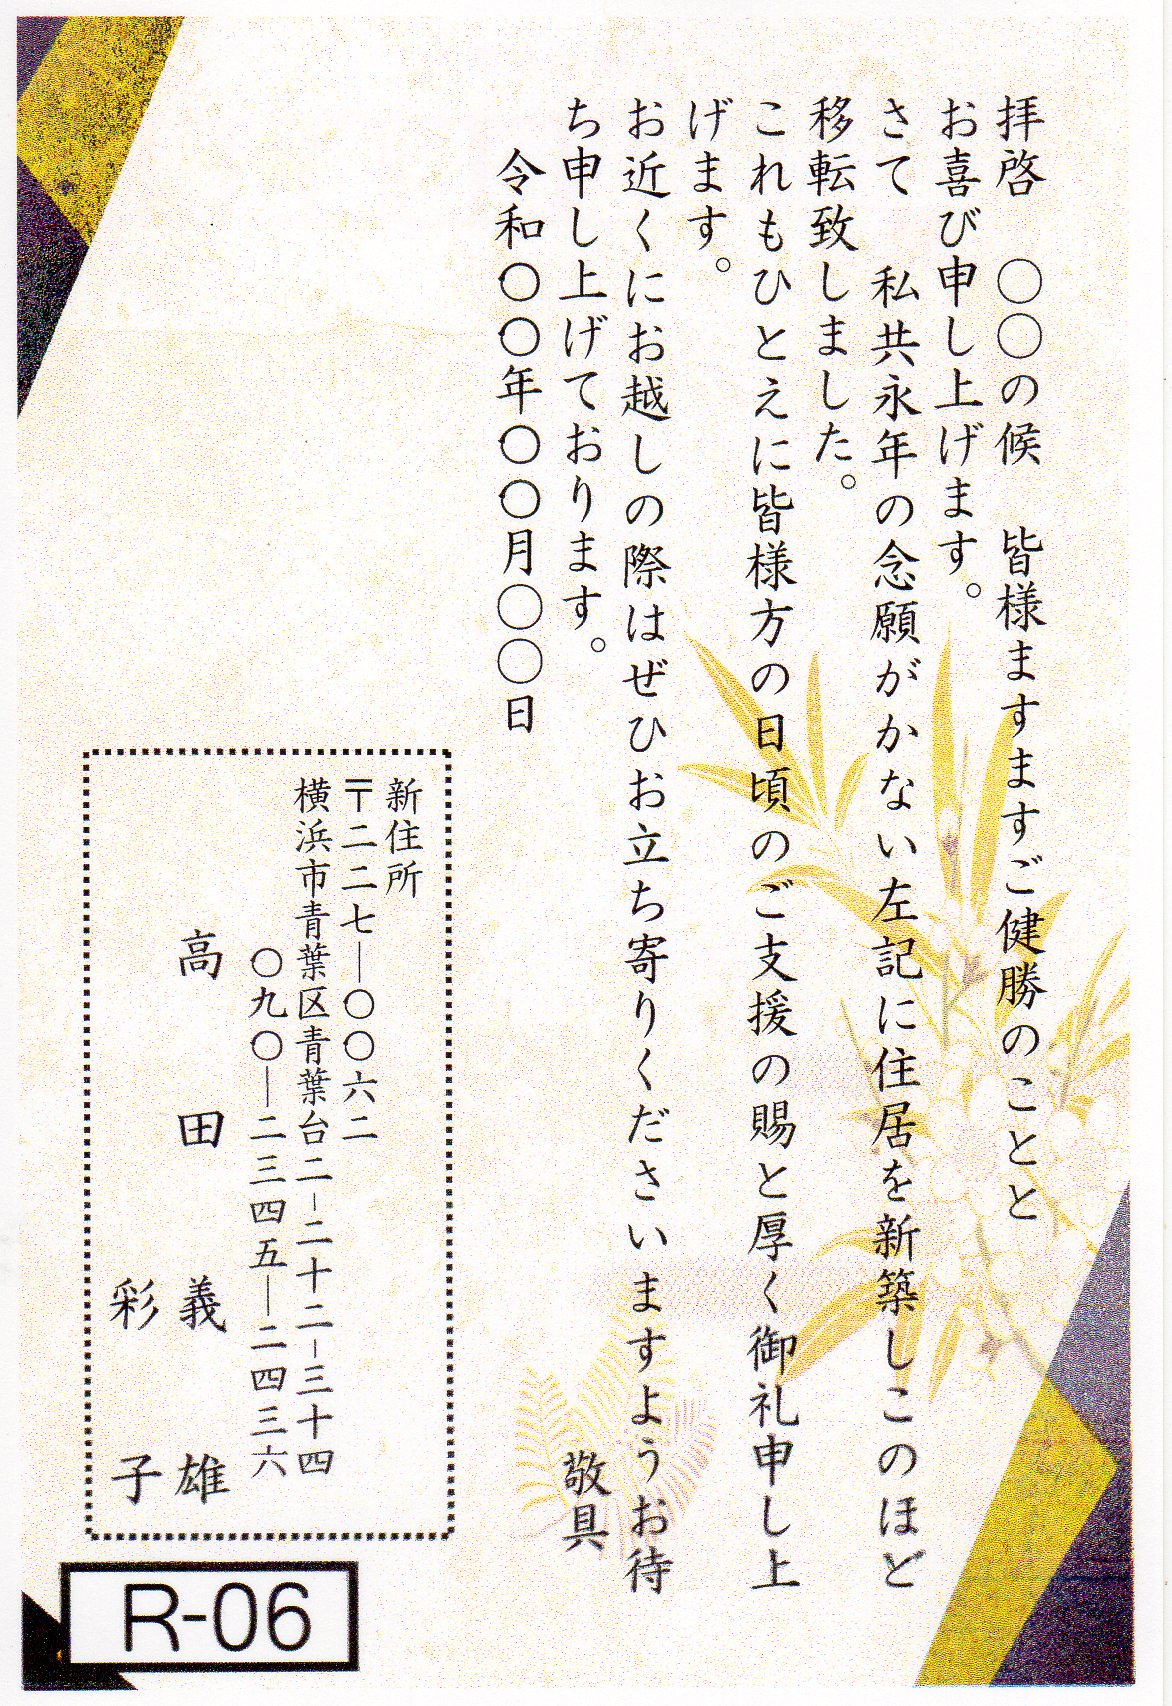 拝啓　〇〇の候　皆様ますますご健勝のことと
お喜び申し上げます。
さて　私共永年の念願がかない左記に住居を新築しこのほど
移転致しました。
これもひとえに皆様方の日頃のご支援の賜と厚く御礼申し上
げます。
お近くにお越しの際はぜひお立ち寄りくださいますようお待
ち申し上げております。　敬具
令和〇〇年〇〇月〇〇日
新住所
〒二二七―〇〇六二
横浜市青葉区青葉台二－二十二－三十四
〇九〇―二三四五―二四三六
高田　義雄
彩子
R-06